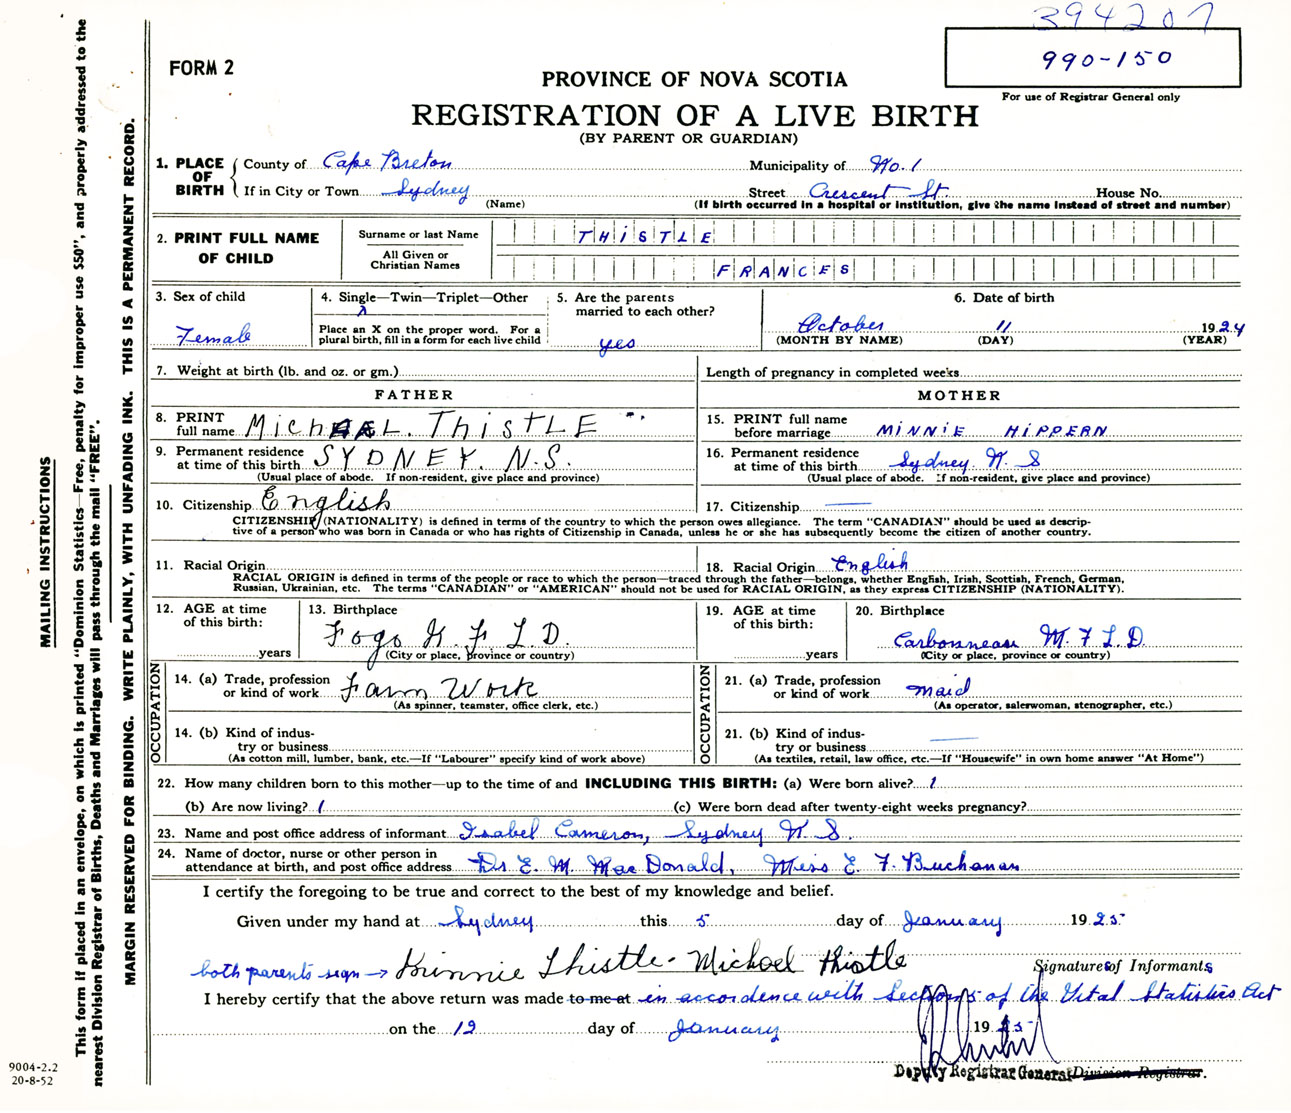 394207
990-150
For use of Registrar General only
FORM 2
PROVINCE OF NOVA SCOTIA
REGISTRATION OF A LIVE BIRTH
(BY PARENT OR GUARDIAN)
1. PLACE OF BIRTH { County of Cape Breton Municipality of No. 1
If in City or Town Sydney Street Crescent St. House No.
(Name) (If birth occurred in a hospital or institution, give the name instead of street and number)
2. PRINT FULL NAME OF CHILD Surname or last Name THISTLE
All Given or Christian Names FRANCES
3. Sex of child Female
4. Single—Twin—Triplet—Other
X
Place an X on the proper word. For a plural birth, fill in a form for each live child
5. Are the parents married to each other? yes
6. Date of birth
October 11 1924
(MONTH BY NAME) (DAY) (YEAR)
7. Weight at birth (lb. and oz. or gm.) Length of pregnancy in completed weeks
FATHER MOTHER
8. PRINT full name MICHAEL. THISTLE
15. PRINT full name before marriage MINNIE HIPPERN
9. Permanent residence at time of this birth SYDNEY. N.S.
(Usual place of abode. If non-resident, give place and province)
16. Permanent residence at time of this birth Sydney. N. S
(Usual place of abode. If non-resident, give place and province)
10. Citizenship English 17. Citizenship —
CITIZENSHIP (NATIONALITY) is defined in terms of the country to which the person owes allegiance. The term "CANADIAN" should be used as descrip-
tive of a person who was born in Canada or who has rights of Citizenship in Canada, unless he or she has subsequently become the citizen of another country.
11. Racial Origin 18. Racial Origin English
RACIAL ORIGIN is defined in terms of the people or race to which the person—traced through the father—belongs, whether English, Irish, Scottish, French, German,
Russian, Ukrainian, etc. The terms "CANADIAN" or "AMERICAN" should not be used for RACIAL ORIGIN, as they express CITIZENSHIP (NATIONALITY).
12. AGE at time of this birth: years
13. Birthplace Fogo N F L D.
(City or place, province or country)
19. AGE at time of this birth: years
20. Birthplace Carbonnear N. F L D.
(City or place, province or country)
OCCUPATION
14. (a) Trade, profession or kind of work Farm Work
(As spinner, teamster, office clerk, etc.)
14. (b) Kind of indus-
try or business
(As cotton mill, lumber, bank, etc.—If "Labourer" specify kind of work above)
OCCUPATION
21. (a) Trade, profession or kind of work maid
(As operator, saleswoman, stenographer, etc.)
21. (b) Kind of indus-
try or business —
(As textiles, retail, law office, etc.—If "Housewife" in own home answer "At Home")
22. How many children born to this mother—up to the time of and INCLUDING THIS BIRTH: (a) Were born alive? 1
(b) Are now living? 1 (c) Were born dead after twenty-eight weeks pregnancy?
23. Name and post office address of informant Isabel Cameron, Sydney N. S.
24. Name of doctor, nurse or other person in attendance at birth, and post office address Dr. E. M. MacDonald, Miss E. F. Buchanan
I certify the foregoing to be true and correct to the best of my knowledge and belief.
Given under my hand at Sydney this 5 day of January 1925
both parents sign → Minnie Thistle - Michael Thistle Signatures of Informants
I hereby certify that the above return was made to me at in accordence with Section 5 of the Vital Statistics Act
on the 12 day of January 1925
Deputy Registrar General Division Registrar.
MAILING INSTRUCTIONS
This form if placed in an envelope, on which is printed "Dominion Statistics—Free, penalty for improper use $50", and properly addressed to the
nearest Division Registrar of Births, Deaths and Marriages will pass through the mail "FREE".
MARGIN RESERVED FOR BINDING. WRITE PLAINLY, WITH UNFADING INK. THIS IS A PERMANENT RECORD.
9004-2.2
20-8-52